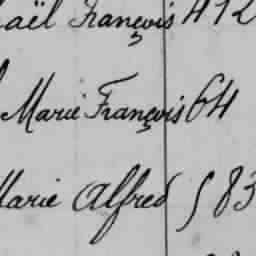 aël François 412
Marie François 64
Marie Alfred 583